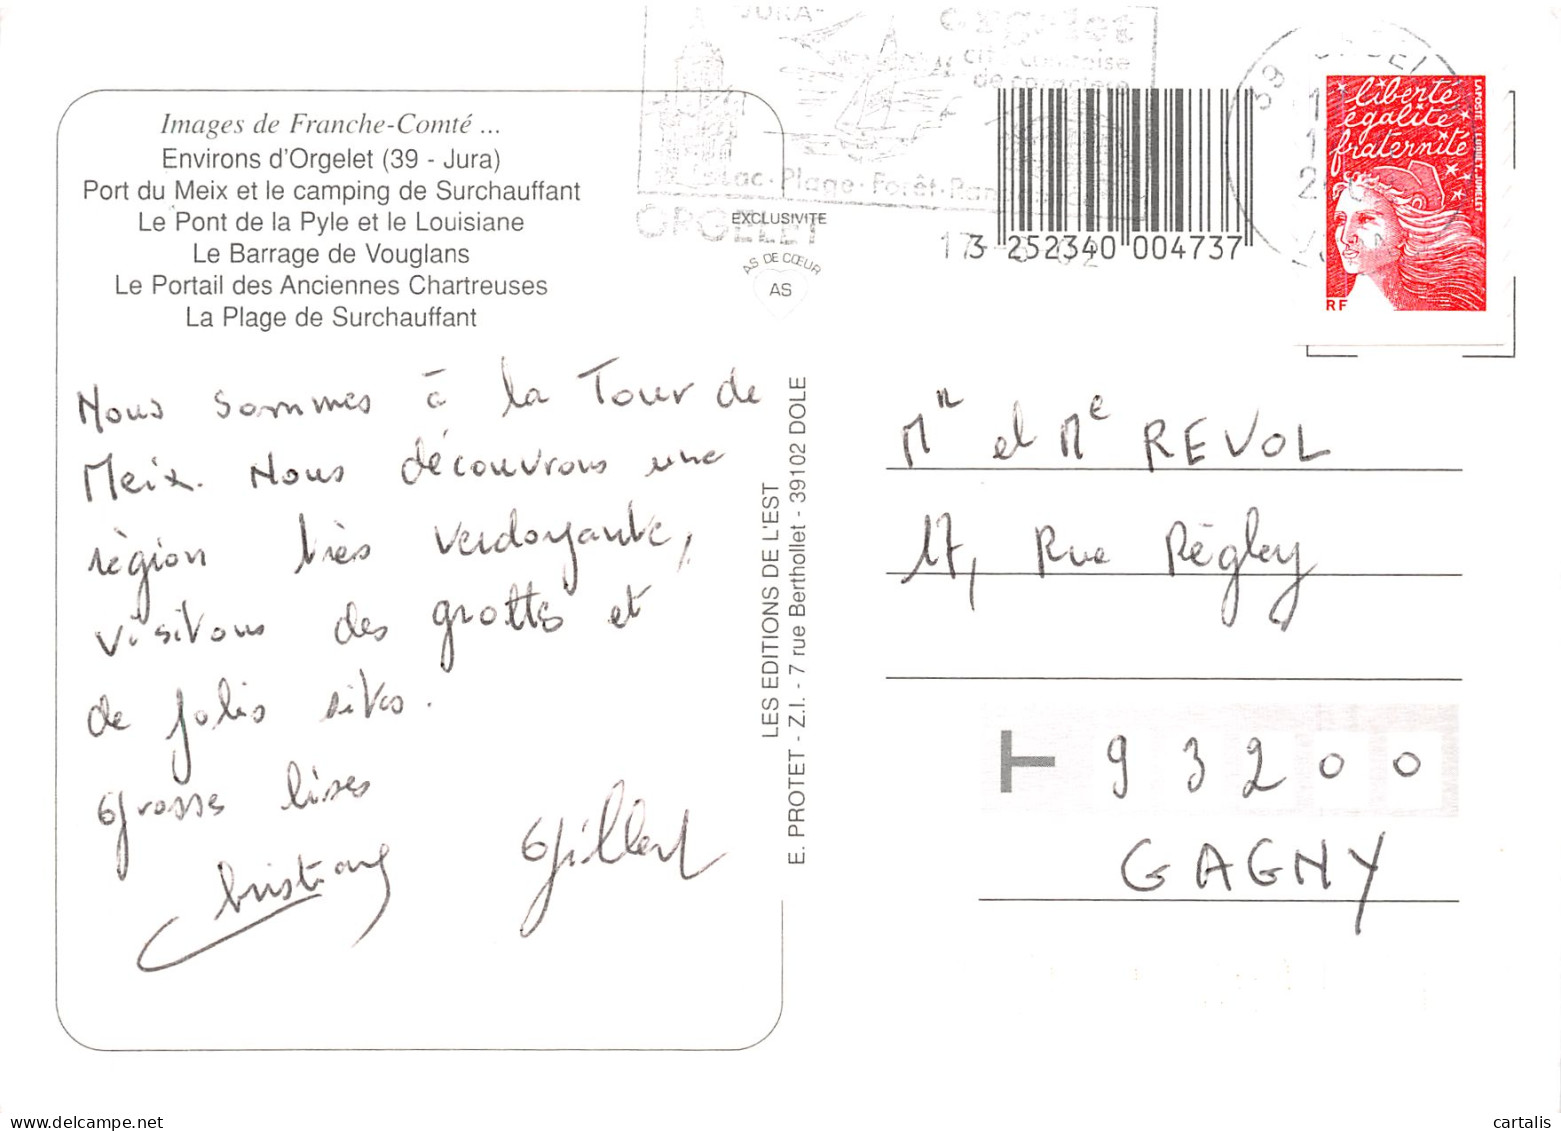 Images de Franche-Comté ...
Environs d'Orgelet (39 - Jura)
Port du Meix et le camping de Surchauffant
Le Pont de la Pyle et le Louisiane
Le Barrage de Vouglans
Le Portail des Anciennes Chartreuses
La Plage de Surchauffant
Nous sommes à la Tour de
Meix. Nous découvrons une
région très verdoyante,
visitons des grottes et
de jolis sites.
Grosses bises
Christiane Gilbert
EXCLUSIVITE
AS DE CŒUR
AS
LES EDITIONS DE L'EST
E. PROTET - Z.I. - 7 rue Berthollet - 39102 DOLE
JURA
Lac · Plage · Forêt
ORGELET
3 252340 004737
liberté
égalité
fraternité
LA POSTE LUQUET, JUMELET
RF
Mr et Me REVOL
17, Rue Règley
T 93200
GAGNY
cartalis